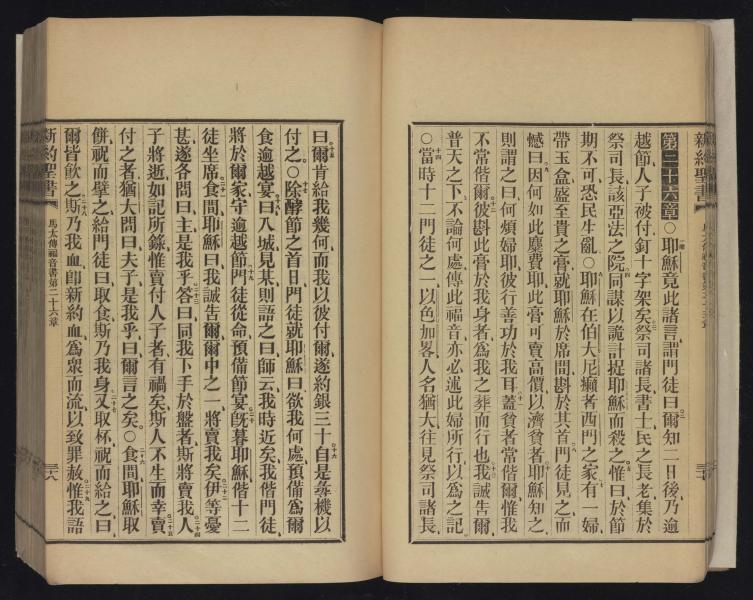 新約聖書
第二十六章○耶穌竟此諸言謂門徒曰爾知二日後乃逾
越節人子被付釘十字架矣祭司諸長書士民之長老集於
祭司長該亞法之院同謀以詭計捉耶穌而殺之惟曰於節
期不可恐民生亂○耶穌在伯大尼癩者西門之家有一婦
帶玉盒盛至貴之膏就耶穌於席間斟於其首門徒見之而
憾曰因何如此靡費耶此膏可賣高價以濟貧者耶穌知之
則謂之曰何煩婦耶彼行善功於我耳蓋貧者常偕爾惟我
不常偕爾彼斟此膏於我身者為我之葬而行也我誠告爾
普天之下不論何處傳此福音亦必述此婦所行以為之記
○當時十二門徒之一以色加畧人名猶大往見祭司諸長
曰爾肯給我幾何而我以彼付爾遂約銀三十自是尋機以
付之○除酵節之首日門徒就耶穌曰欲我何處預備為爾
食逾越宴曰入城見某則語之曰師云我時近矣我偕門徒
將於爾家守逾越節門徒從命預備節宴既暮耶穌偕十二
徒坐席食間耶穌曰我誠告爾爾中之一將賣我矣伊等憂
甚遂各問曰主是我乎答曰同我下手於盤者斯將賣我人
子將逝如記所錄惟賣付人子者有禍矣斯人不生而幸賣
付之者猶大問曰夫子是我乎曰爾言之矣○食間耶穌取
餅祝而擘之給門徒曰取食斯乃我身又取杯祝而給之曰
爾皆飲之斯乃我血卽新約血為眾而流以致罪赦惟我語
新約聖書 馬太傳福音書第二十六章